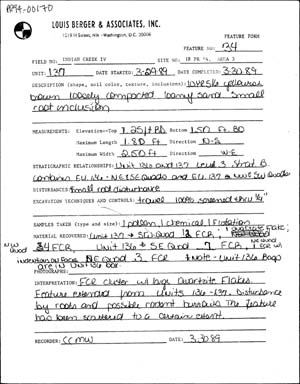 AP94-00170
LOUIS BERGER & ASSOCIATES, INC.
1819 H Street, NW · Washington, D.C. 20006
FEATURE FORM
FEATURE NO: 34
FIELD NO: INDIAN CREEK IV SITE 18 PR 94, AREA 3
UNIT: 137 DATE STARTED: 3-29-89 DATE COMPLETED: 3-30-89
DESCRIPTION (shape, soil color, texture, inclusions): 10YR5/6 yellowish
brown loosely compacted loamy sand. Small
root inclusion
MEASUREMENTS: Elevation-Top 1.25ft BD Bottom 1.50 ft. BD
Maximum Length 1.80 ft Direction N-S
Maximum Width 2.50 ft Direction W-E
STRATIGRAPHIC RELATIONSHIPS: Unit 136 and 137 Level 3 Strat B
contains EU 136 - NE & SE Quads and EU 137 Quads
DISTURBANCES: Small root disturbance
EXCAVATION TECHNIQUES AND CONTROLS: trowel 100% screened thru 1/4"
SAMPLES TAKEN (type and size): 1 pollen, 1 Chemical, 1 Flotation
MATERIAL RECOVERED: Unit 137 SW Quad 12 FCR, 1 quartzite flake;
NW Quad 34 FCR, Unit 136 SE Quad 7 FCR, 1 FCR w/
indentation on face NE Quad 3 FCR Note - Unit 136 Bags
are in Unit 136 box.
PHOTOGRAPHS:
INTERPRETATION: FCR cluster w/ huge quartzite flakes.
Feature extended from Units 136-137. Disturbance
by roots and possible rodent burrows. The feature
has been scattered to a certain extent.
RECORDER: CCMW DATE: 3-30-89